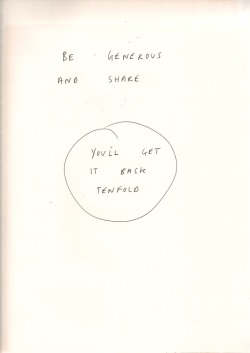 BE GENEROUS
AND SHARE
YOU'LL GET
IT BACK
TENFOLD